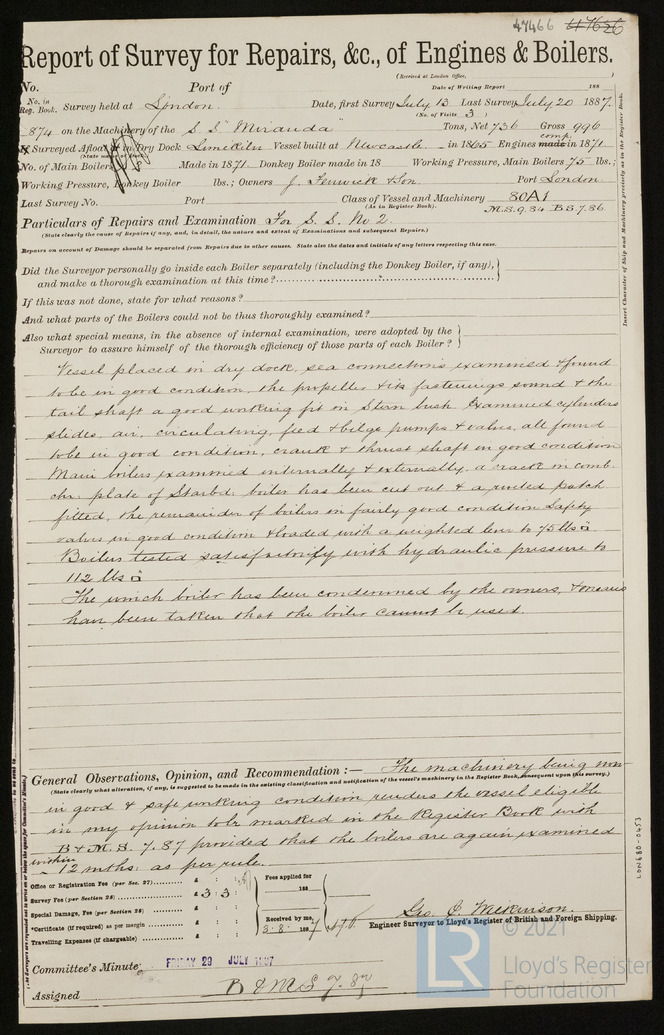 47466 47626
Report of Survey for Repairs, &c., of Engines & Boilers.
(Received at London Office, )
No. Port of Date of Writing Report 188
No. in Reg. Book. Survey held at London Date, first Survey July 13 Last Survey July 20 1887.
(No. of Visits 3 )
874 on the Machinery of the S.S "Miranda" Tons, Net 736 Gross 996
Surveyed Afloat or in Dry Dock Limekiln Vessel built at Newcastle - in 1865 Engines made comp. in 1871
(State name of Dock)
No. of Main Boilers Made in 1871 Donkey Boiler made in 18 Working Pressure, Main Boilers 75 lbs.;
Working Pressure, Donkey Boiler lbs.; Owners J. Fenwick & Son Port London
Last Survey No. Port Class of Vessel and Machinery 80A1
(As in Register Book). M.S. 9.84 B.S. 7.86
Particulars of Repairs and Examination For S. S. No 2.
(State clearly the cause of Repairs if any, and, in detail, the nature and extent of Examinations and subsequent Repairs.)
Repairs on account of Damage should be separated from Repairs due to other causes. State also the dates and initials of any letters respecting this case.
Did the Surveyor personally go inside each Boiler separately (including the Donkey Boiler, if any),
and make a thorough examination at this time?
If this was not done, state for what reasons?
And what parts of the Boilers could not be thus thoroughly examined?
Also what special means, in the absence of internal examination, were adopted by the
Surveyor to assure himself of the thorough efficiency of those parts of each Boiler?
Vessel placed in dry dock, sea connections examined & found
to be in good condition, the propeller & its fastenings sound & the
tail shaft a good working fit in Stern bush. Examined cylinders
slides, air, circulating, feed & bilge pumps & valves, all found
to be in good condition, crank & thrust shaft in good condition
Main boilers examined internally & externally. a crack in comb
chr. plate of Starbd. boiler has been cut out & a riveted patch
fitted, the remainder of boilers in fairly good condition Safety
valves in good condition & loaded with a weighted lever to 75 lbs □
Boilers tested satisfactorily with hydraulic pressure to
112 lbs □
The winch boiler has been condemned by the owners, & means
have been taken that the boiler cannot be used.
General Observations, Opinion, and Recommendation :— The machinery being now
(State clearly what alteration, if any, is suggested to be made in the existing classification and notification of the vessel's machinery in the Register Book, consequent upon this survey.)
in good & safe working condition renders the vessel eligible
in my opinion to be marked in the Register Book with
B & M.S. 7.87 provided that the boilers are again examined
within 12 mths. as per rule.
Office or Registration Fee (per Sec. 27) £ : :
Survey Fee (per Section 28) £ 3 : 3 :
Special Damage, Fee (per Section 28) £ : :
*Certificate (if required) as per margin £ : :
Travelling Expenses (if chargeable) £ : :
Fees applied for
188
Received by me,
3.8. 1887
Geo. C. Wilkinson.
Engineer Surveyor to Lloyd's Register of British and Foreign Shipping.
Committee's Minute FRIDAY 29 JULY 1887
Assigned B & MS 7.87
Insert Character of Ship and Machinery precisely as in the Register Book.
LON680-0453
© 2021
LR
Lloyd's Register
Foundation